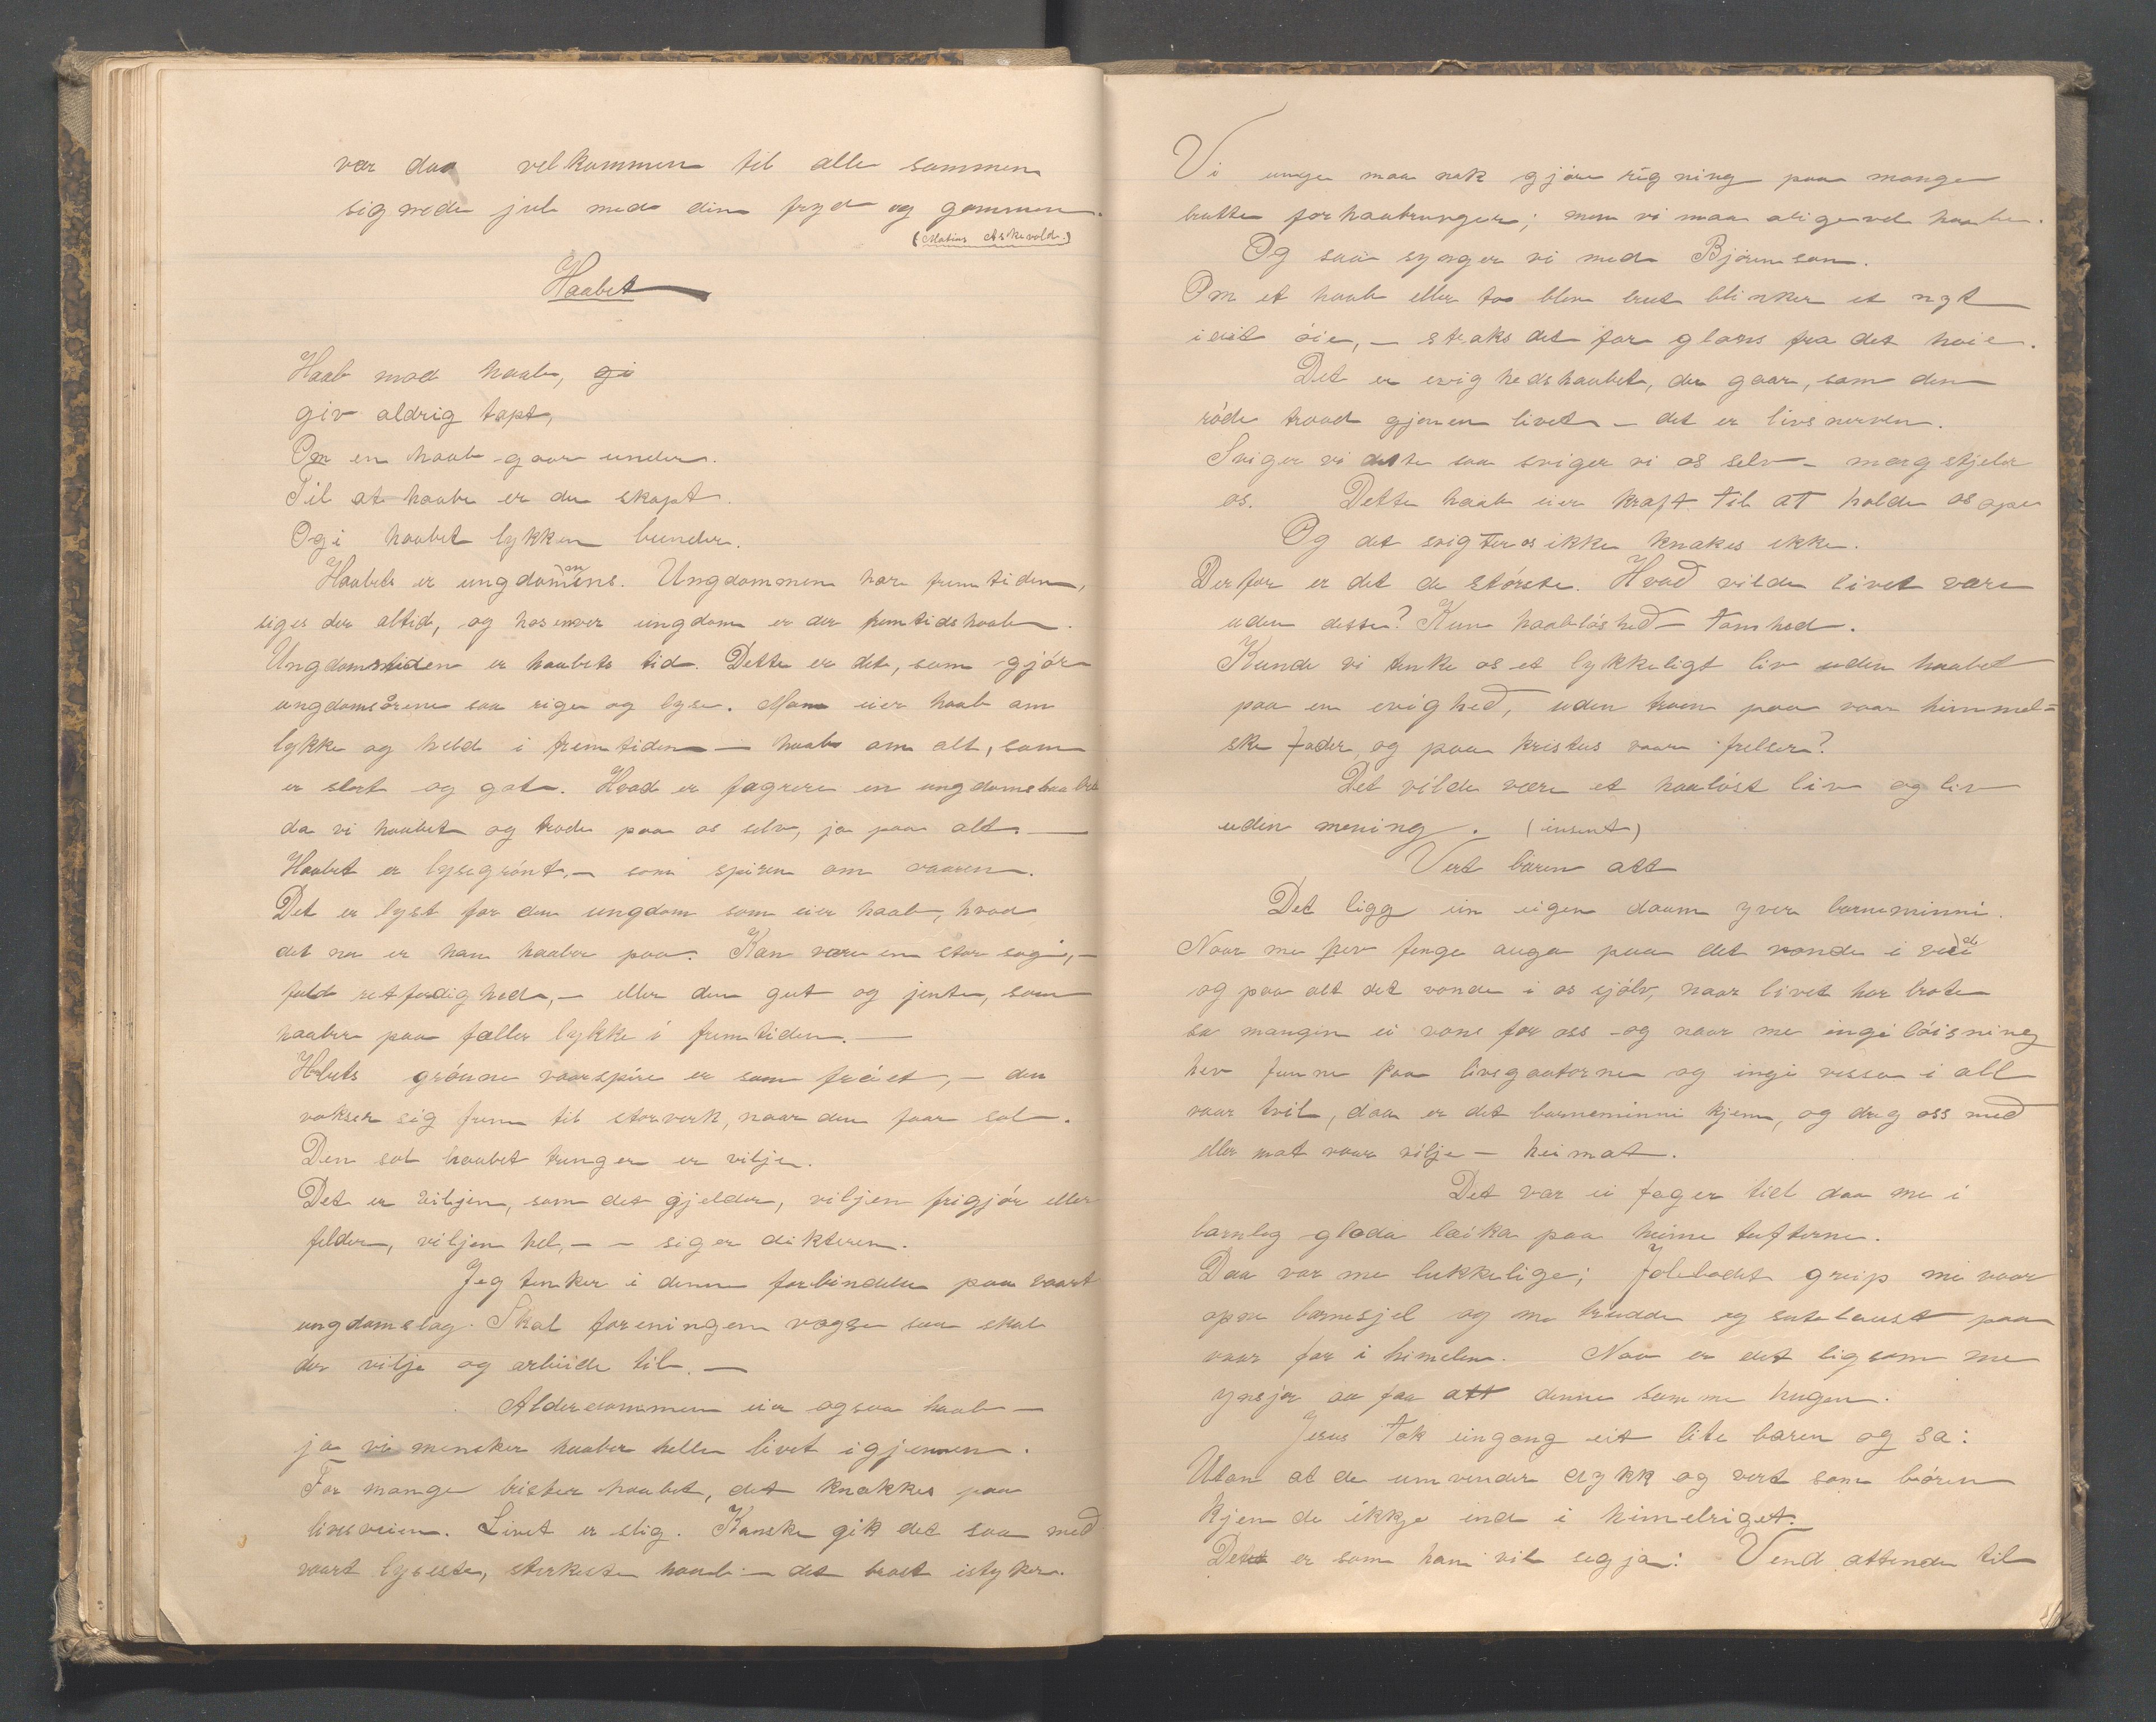 vær daa velkommen til alle sammen
signede jul med din fryd og gammen.
(Matias Askevold.)
Haabet
Haab mod haab, gi
giv aldrig tapt,
Om en haab gaar under.
Til at haabe er du skapt.
Og i haabet lykken bunder.
Haabets er ungdommens. Ungdommen har fremtiden,
siges der altid, og hos enver ungdom er der fremtidshaab.
Ungdomstiden er haabets tid. Dette er det, som gjór
ungdomsårene saa rige og lyse. Man eier haab om
lykke og held i fremtiden — haab om alt, som
er stort og godt. Hvad er fagrere en ungdomshaabet
da vi haabet og trode paa os selv, ja paa alt. —
Haabet er lysegrónt, — som spiren om vaaren.
Det er lyst for den ungdom som eier haab, hvad
det nu er han haaber paa. Kan være en stor sag, —
fuld retferdighed, — eller den gut og jente, som
haaber paa fælles lykke i fremtiden. —
Habets grónne vaarspire er som fróet, — den
vokser sig frem til storverk, naar den faar sol.
Den sol haabet trenger er vilje.
Det er viljen, som det gjelder, viljen frigjór eller
felder, viljen hel, — — siger dikteren.
Jeg tenker i denne forbindelse paa vaart
ungdomslag. Skal foreningen vogse saa skal
der vilje og arbeide til. —
Alderdommen eier ogsaa haab —
ja vi mensker haaber helle livet igjennem.
For mange brister haabet, det knakkes paa
livsveien. Livet er slig. Kanske gik det saa med
vaart lyseste, sterkeste haab — det brast istyker.
Vi unge maa nok gjóre rigning paa mange
brutte forhaabninger; men vi maa aligevel haabe.
Og saa synger vi med Bjórnson.
Om et haab eller to blev brut blinker et nyt
i eit óie, — straks det far glans fra det hóie.
Det er evighedshaabet, der gaar, som den
róde traad gjenem livet — det er livsnerven.
Sviger vi dette saa sviger vi os selv — marg stjeler
os. Dette haab eier kraft til at holde os ope
Og det svigter os ikke knakes ikke.
Derfor er det de stórste. Hvad vilde livet vare
uden desse? Kun haablóshed — tomhed.
Kunde vi tenke os et lykkeligt liv uden haabet
paa en evighed, uden troen paa vaar himmel=
ske fader, og paa kristus vaar frelser?
Det vilde være et haalóst liv og liv
uden mening. (insent)
Vert baren att
Det ligg ein eigen daam yver barneminni.
Naar me hev fenge auga paa det vonde i verdi
og paa alt det vonde i os sjólv, naar livet har brote
so mangin ei von for oss og naar me ingi lóisning
hev funne paa livsgaatorne og ingi vissa i all
vaar tvil, daa er det barneminni kjem, og dreg oss med
eller mot vaar vilje — heimat.
Det var ei fager tid daa me i
barnleg gleda leika paa heime tufterne.
Daa var me lukkelige; Jolebodet greip inn vaar
opne barnesjel og me trudde eg sutelaust paa
vaar far i himelen. Nao er det ligsom me
ynsjer aa faa att denne samme hugen.
Jesus tok eingong eit lite baren og sa:
Utan at de umvender dykk og vert som bóren
kjem de ikkje ind i himelriget.
Det er som han vil segja: Vend attende til